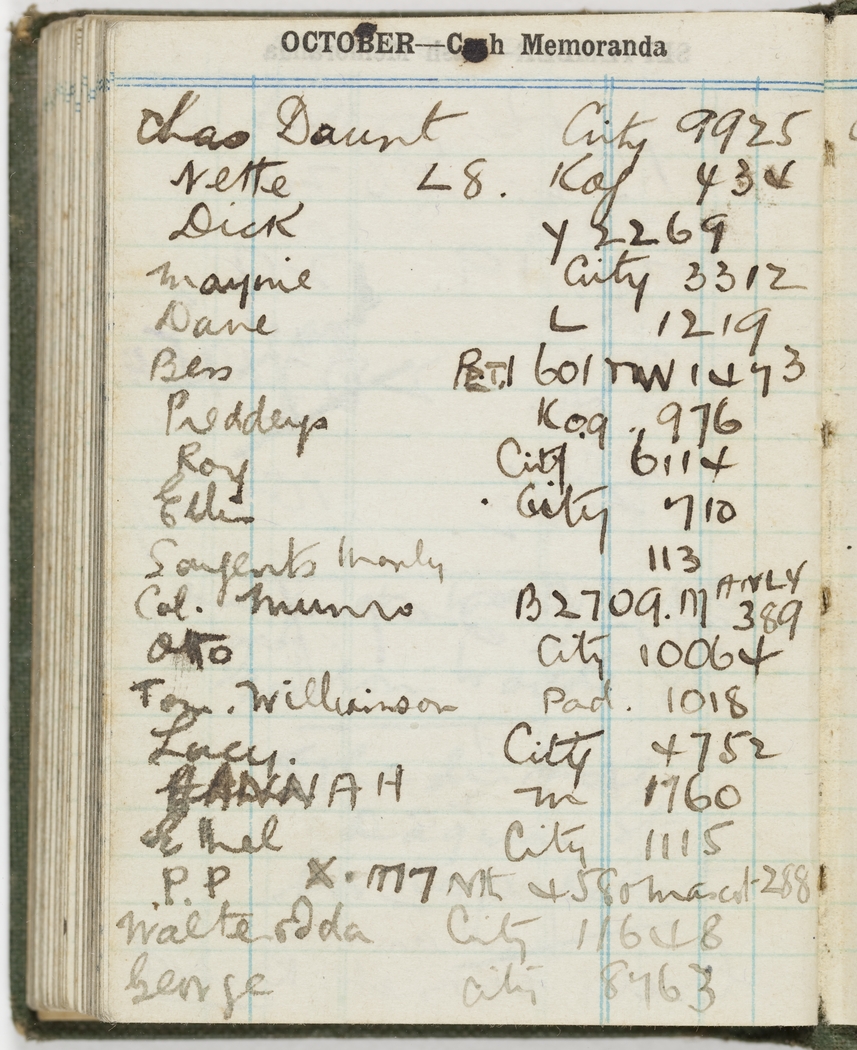 OCTOBER—Cash Memoranda
Chas Daunt City 9925
Nette L8. Kog 434
Dick Y 2269
Maynie City 3312
Dave L 1219
Bess PET.1 601 MW 1473
Preddeys Kog. 976
Roy City 6114
City 710
Sargents Manly 113
Col. Munro B2709. MANLY 389
Otto City 10064
Tom. Williainson Pad. 1018
Lucy. City 4752
HANNAH m 1760
Ethel City 1115
P.P X. M7 Nth 4580 mascot-288
Walter & Ida City 11648
George City 8763